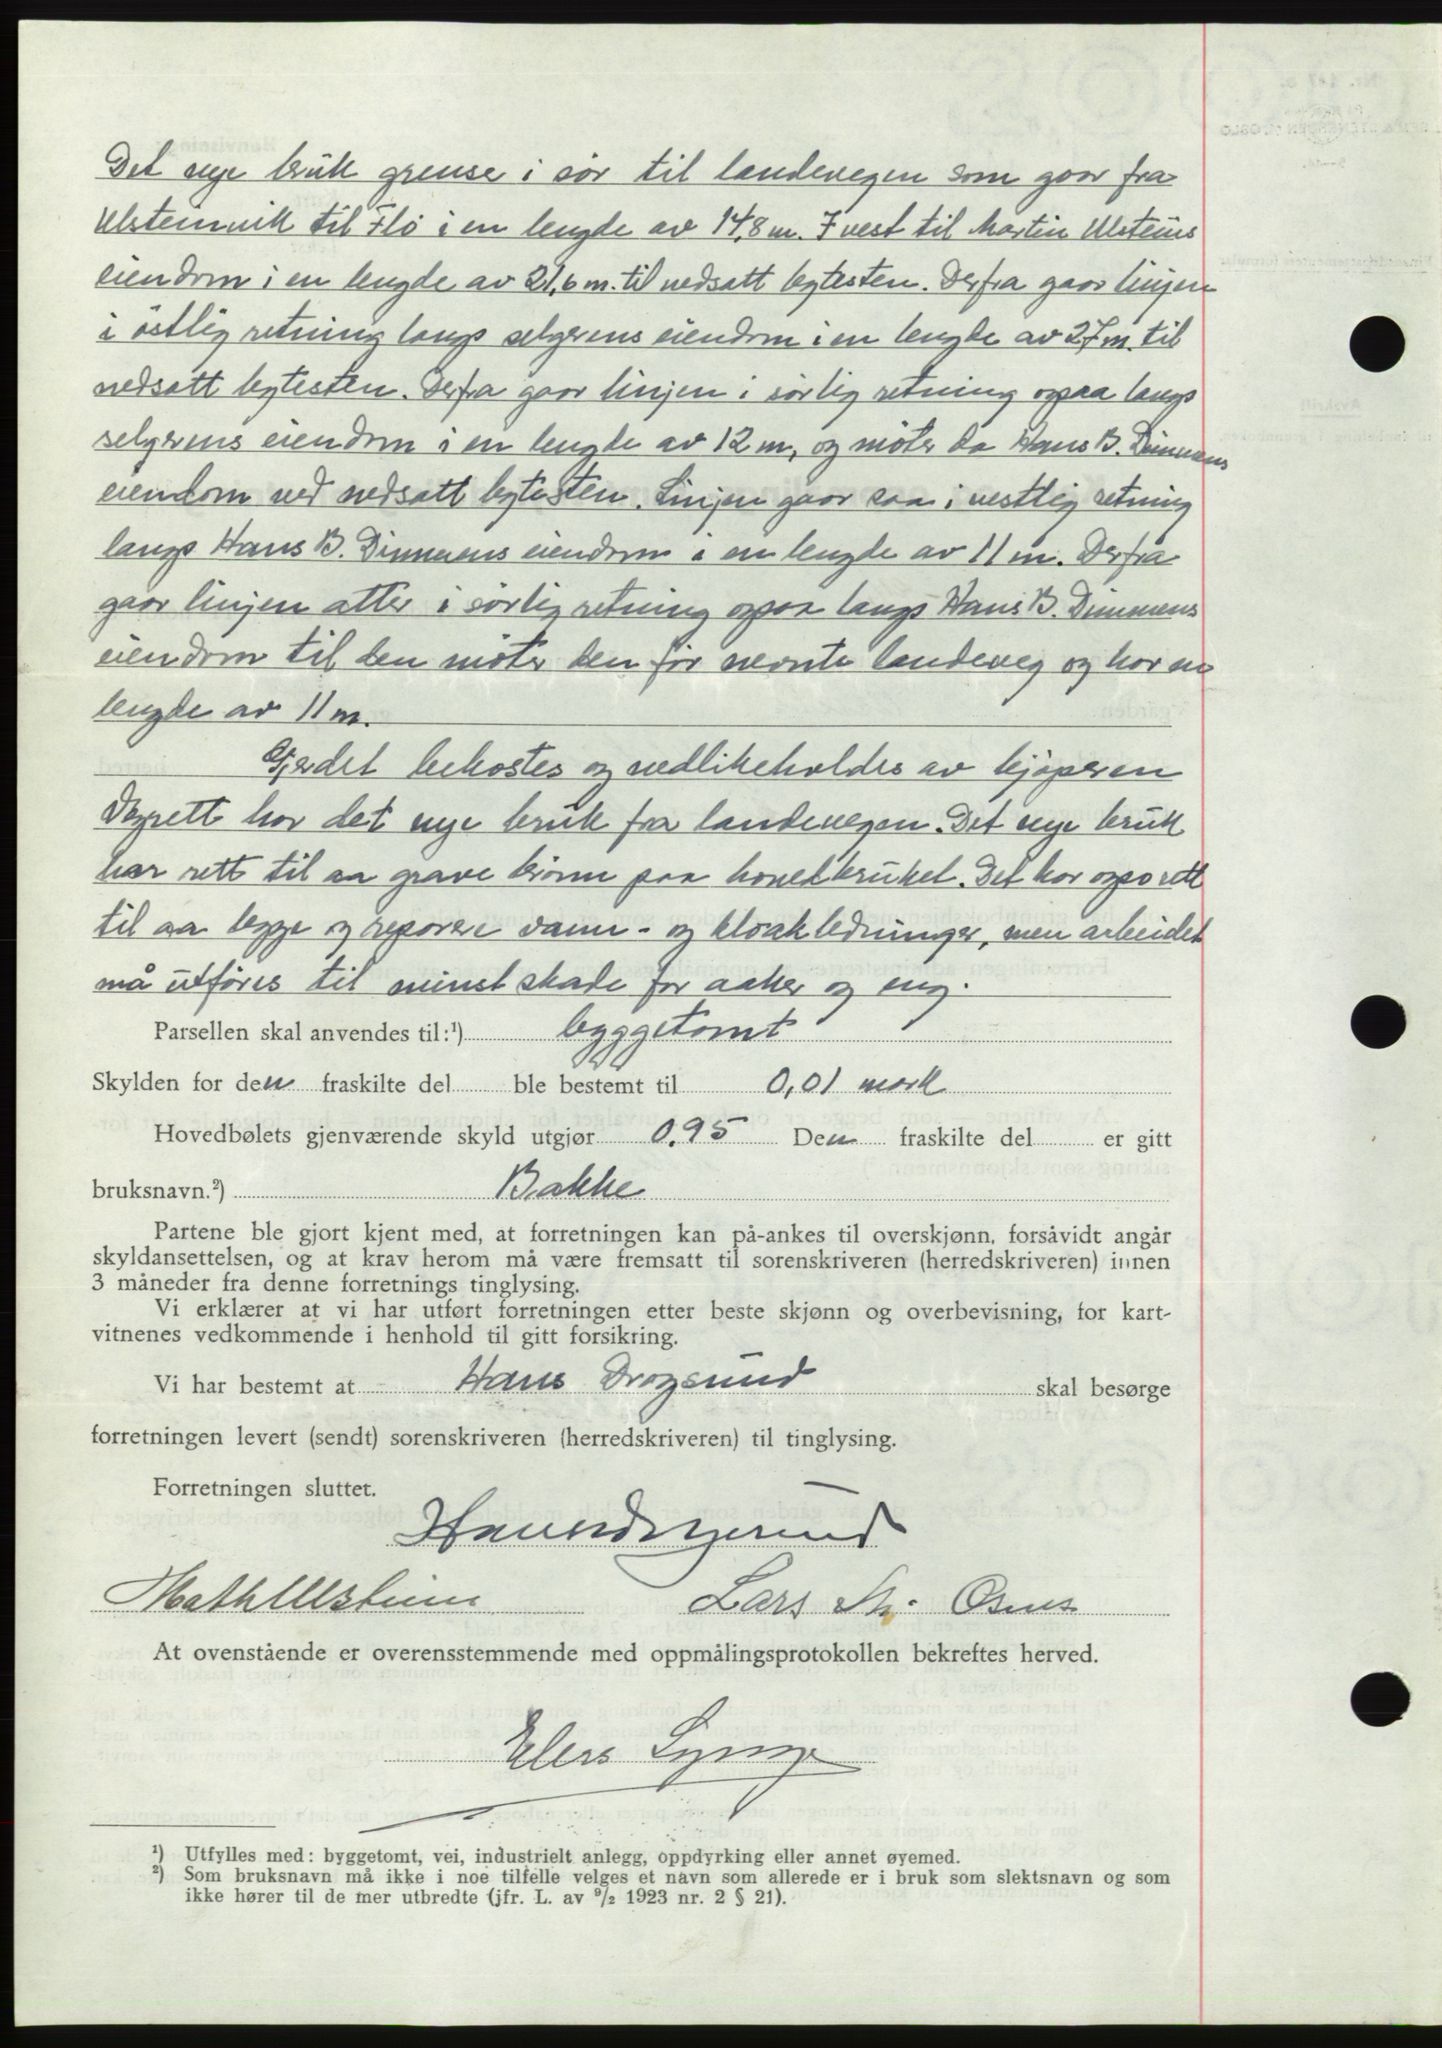 Det nye bruk grense i sör til landevegen som gaar fra
Ulsteinvik til Flö i en lengde av 14,8 m. I vest til Martin Ulsteins
eiendom i en lengde av 21,6 m. til nedsatt bytesten. Derfra gaar linjen
i östlig retning langs selgerens eiendom i en lengde av 27 m. til
nedsatt bytesten. Derfra gaar linjen i sörlig retning ogsaa langs
selgerens eiendom i en lengde av 12 m, og möter da Hans B. Dimmens
eiendom ved nedsatt bytesten. Linjen gaar saa i vestlig retning
langs Hans B. Dimmens eiendom i en lengde av 11 m. Derfra
gaar linjen atter i sörlig retning ogsaa langs Hans B. Dimmens
eiendom til den möter den för nevnte landeveg og har en
lengde av 11 m.
Gjerdet bekostes og vedlikeholdes av kjöperen
Vegrett har det nye bruk fra landevegen. Det nye bruk
har rett til aa grave brönn paa hovedbruket. Det har ogso rett
til aa legge og reparere vann- og kloakledninger, men arbeidet
må utföres til minst skade for aaker og eng.
Parsellen skal anvendes til:¹) byggetomt
Skylden for den fraskilte del ble bestemt til 0,01 mark
Hovedbølets gjenværende skyld utgjør 0,95 Den fraskilte del er gitt
bruksnavn.²) Bakke
Partene ble gjort kjent med, at forretningen kan på-ankes til overskjønn, forsåvidt angår
skyldansettelsen, og at krav herom må være fremsatt til sorenskriveren (herredskriveren) innen
3 måneder fra denne forretnings tinglysing.
Vi erklærer at vi har utført forretningen etter beste skjønn og overbevisning, for kart-
vitnenes vedkommende i henhold til gitt forsikring.
Vi har bestemt at Hans Dragsund skal besørge
forretningen levert (sendt) sorenskriveren (herredskriveren) til tinglysing.
Forretningen sluttet.
Hans Dragsund
Math Ulstein Lars M. Osnes
At ovenstående er overensstemmende med oppmålingsprotokollen bekreftes herved.
¹) Utfylles med: byggetomt, vei, industrielt anlegg, oppdyrking eller annet øyemed.
²) Som bruksnavn må ikke i noe tilfelle velges et navn som allerede er i bruk som slektsnavn og som
ikke hører til de mer utbredte (jfr. L. av ⁹/₂ 1923 nr. 2 § 21).